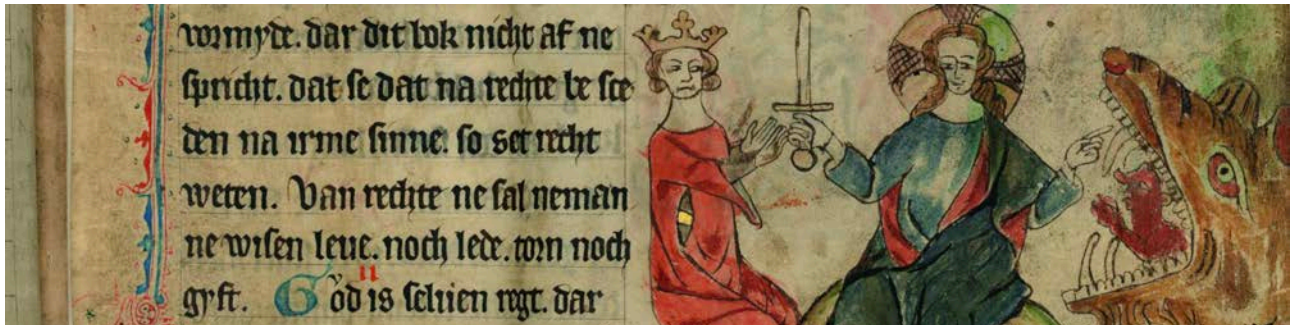 vormyde. dar dit bok nicht af ne
spricht. dat se dat na rechte be sce
den na irme sinne. so set recht
weten. Van rechte ne sal neman
ne wisen leue. noch lede. torn noch
gyft. God is seluen regt. dar